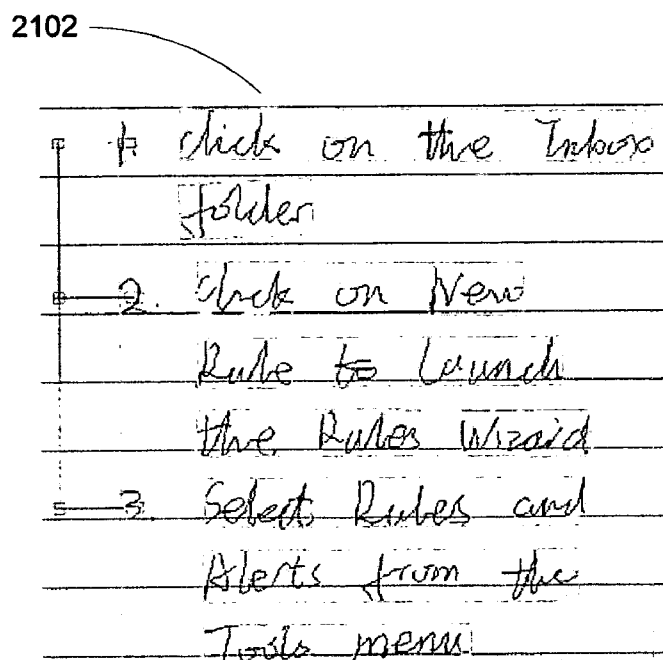 2102
1. click on the Inbox
folder
2. Click on New
Rule to Launch
the Rules Wizard
3. Select Rules and
Alerts from the
Tools menu